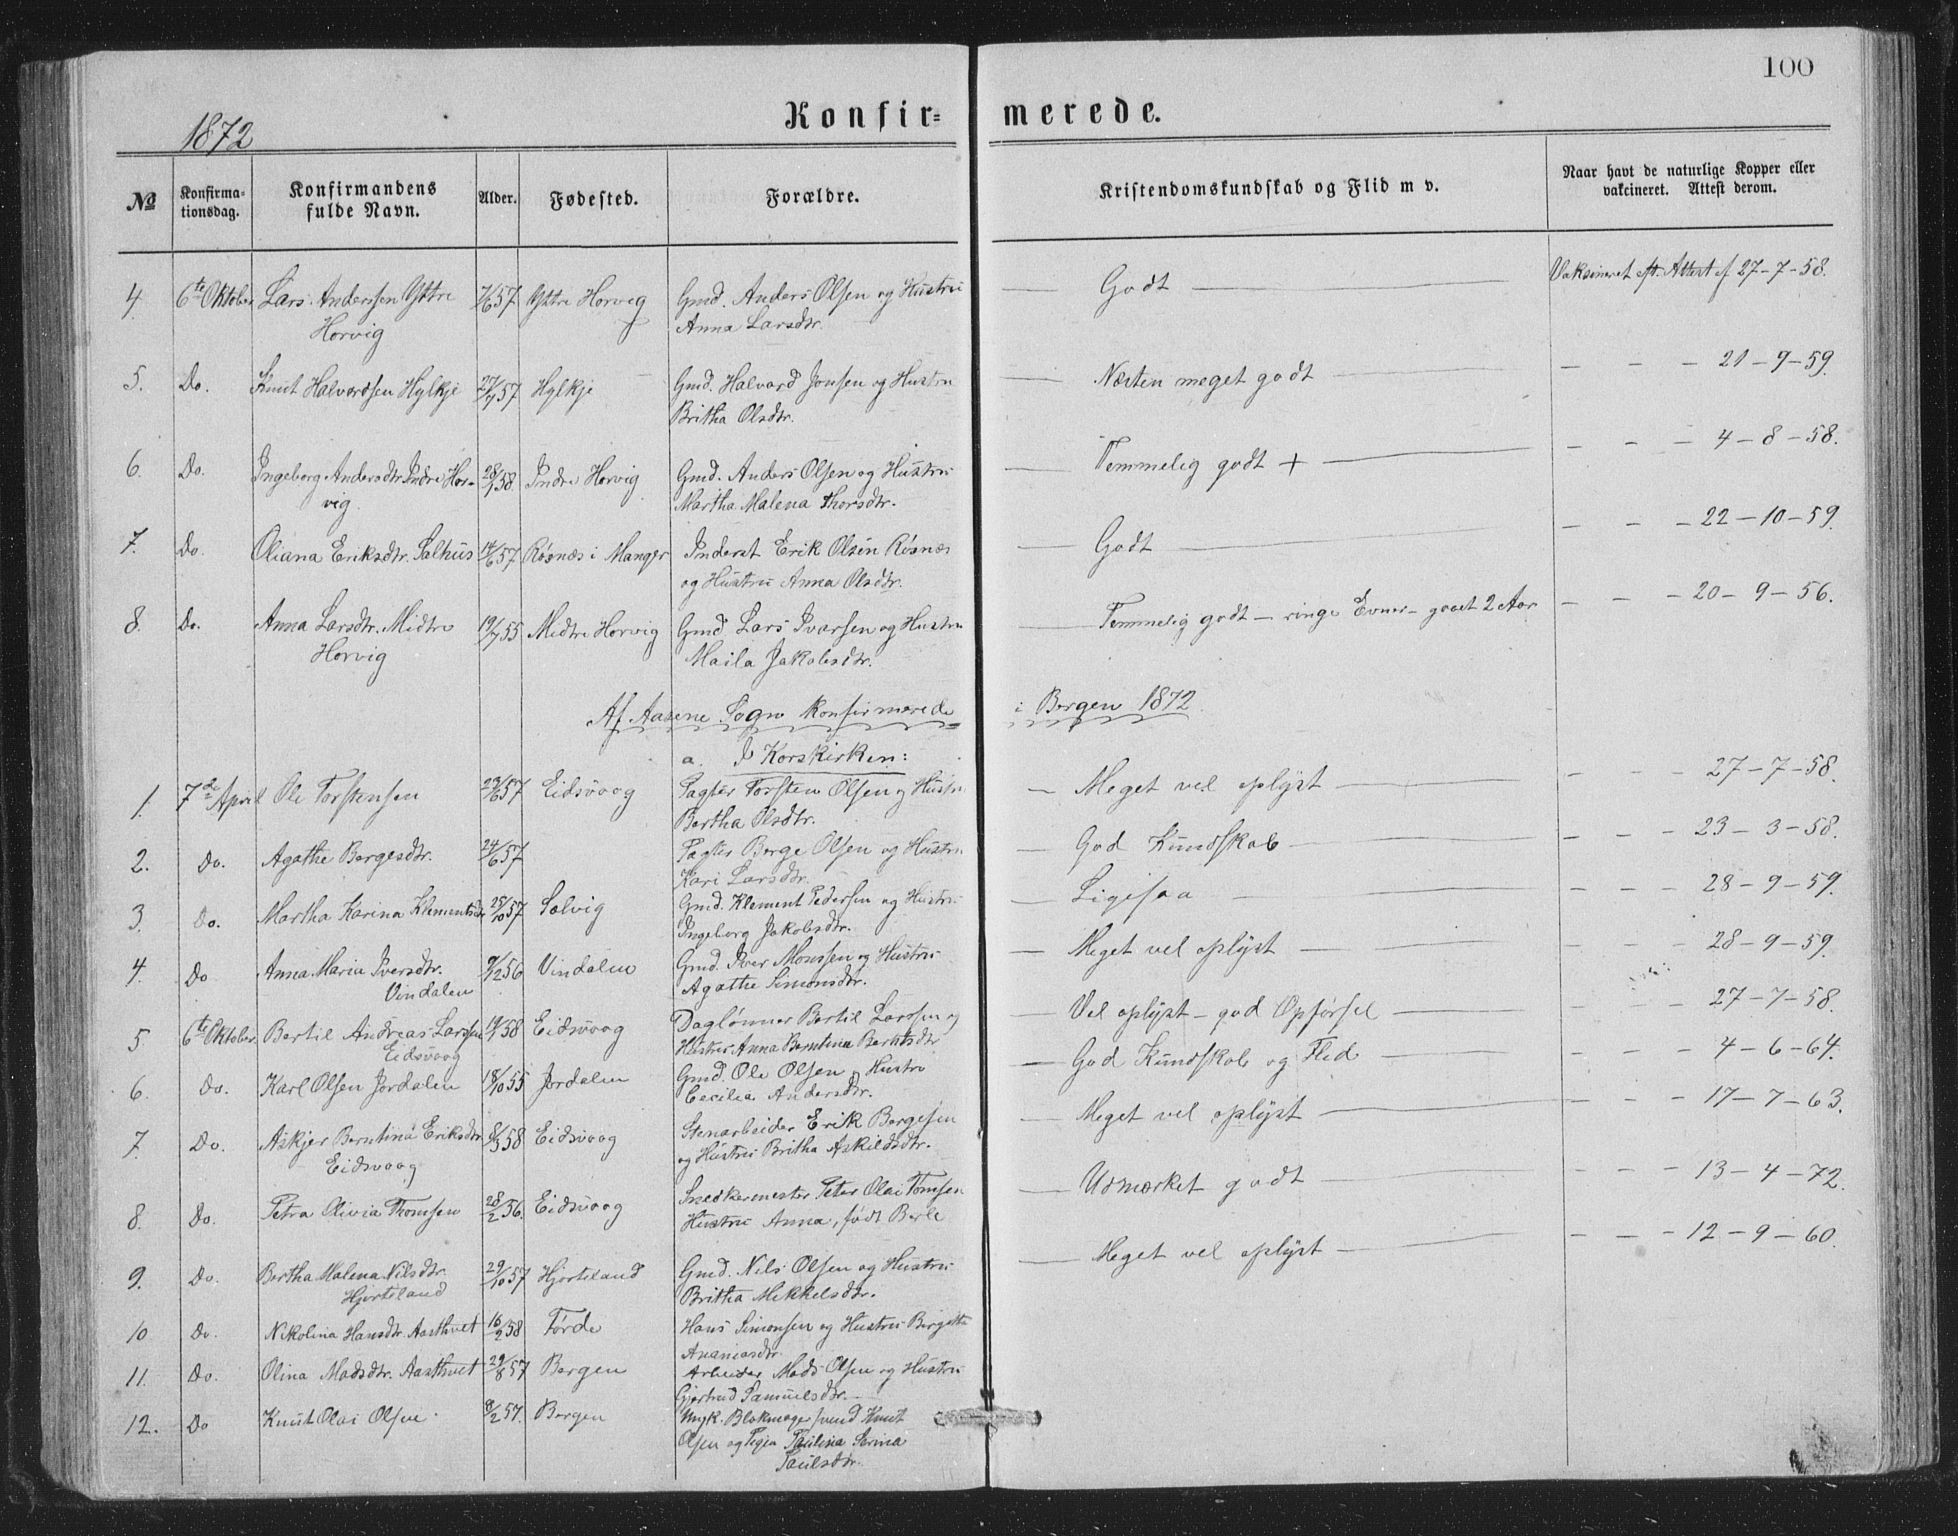 100
Konfir= merede.
1872
№ Konfirma=tionsdag. Konfirmandens fulde Navn. Alder. Fødested. Forældre. Kristendomskundskab og Flid m v. Naar havt de naturlige Kopper eller vakcineret. Attest derom.
4. 6te Oktober Lars Anderssen Yttre 7/6 57 Yttre Horvig Gmd. Anders Olsen og Hustru Godt — Vaksineret Attest af 27-7-58.
Horvig Anna Larsdtr.
5. Do. Knut Halvordsen Hylkje 27/7 57 Hylkje Gmd. Halvard Jonsen og Hustru — Næsten meget godt — — — — 21-9-59.
Britha Olsdtr.
6 Do. Ingeborg Andersdtr. Indre Hor- 28/1 58. Indre Horvig Gmd. Anders Olsen og Hustru — Temmelig godt + — — — — 4-8-58.
vig. Martha Malena Thorsdtr.
7. Do. Oliana Eriksdtr. Salhus 14/6 57 Røsnæs i Manger Inderst Erik Olsen Røsnæs — Godt — — — — 22-10-59.
og Hustru Anna Olsdtr.
8. Do. Anna Larsdtr. Midtre 19/7 55 Midtre Horvig Gmd Lars Ivarsen og Hustru — Temmelig godt — ringe Evner — gaaet 2 Aar — — — 20-9-56.
Horvig Maila Jakobsdtr.
Af Aasene Sogn Konfirmerede i Bergen 1872
a. I Korskirken:
1. 7de April Ole Torstensen 23/6 57 Eidsvaag Pagter Torsten Olsen og Hustru — Meget vel oplyst — — — — 27-7-58.
Bertha Olsdtr.
2. Do. Agathe Børgesdtr. 24/6 57 Pagter Børge Olsen og Hustru — God Kundskab — — — — 23-3-58.
Kari Larsdtr.
3. Do. Martha Karina Klementsdtr 25/10 57 Sælvig Gmd. Klement Pedersen og Hustru — Ligesaa — — — — 28-9-59.
Ingeborg Jakobsdtr.
4 Do Anna Marie Iversdtr. 9/12 56 Vindalen Gmd. Iver Monssen og Hustru — Meget vel oplyst — — — — 28-9-59.
Vindalen Agathe Simonsdtr.
5 6te Oktober. Bertil Andreas Larssen 19/1 58 Eidsvaag Daglønner Bertil Larssen og — Vel oplyst — god Opførsel — — — — 27-7-58.
Eidsvaag Hustru Anna Berntina Berntsdtr
6. Do. Karl Olsen Jordalen 18/10 55 Jordalen Gmd. Ole Olsen og Hustru — God Kundskab og Flid — — — — 4-6-64.
Cecilia Andersdtr.
7. Do. Askjer Berntina Eriksdtr 8/3 58 Eidsvaag Stenarbeider Erik Børgesen — Meget vel oplyst — — — — 17-7-63.
Eidsvaag og Hustru Britha Askildsdtr.
8. Do. Petra Olivia Thomsen 28/2 56. Eidsvaag Snedkermester Peter Olai Tomsen — Udmærket godt — — — — 13-4-72.
Hustru Anna, født Berle
9. Do. Bertha Malena Nilsdtr. 29/10 57 Hjorteland Gmd. Nils Olsen og Hustru — Meget vel oplyst — — — — 12-9-60.
Hjorteland Britha Mikkelsdtr.
10 Do. Nikolina Hansdtr. Aasthvet 16/2 58 Førde Hans Simonsen og Hustru Birgitte
Ananiasdtr.
11. Do. Olina Madsdtr. Aasthvet 29/8 57 Bergen Arbeider Mads Olsen og Hustru
Gjertrud Samuelsdtr.
12. Do Knut Olai Olsen 8/2 57. Bergen Blokmagersvend Knut
Olsen og Pige Paulina Serina
Paulsdtr.